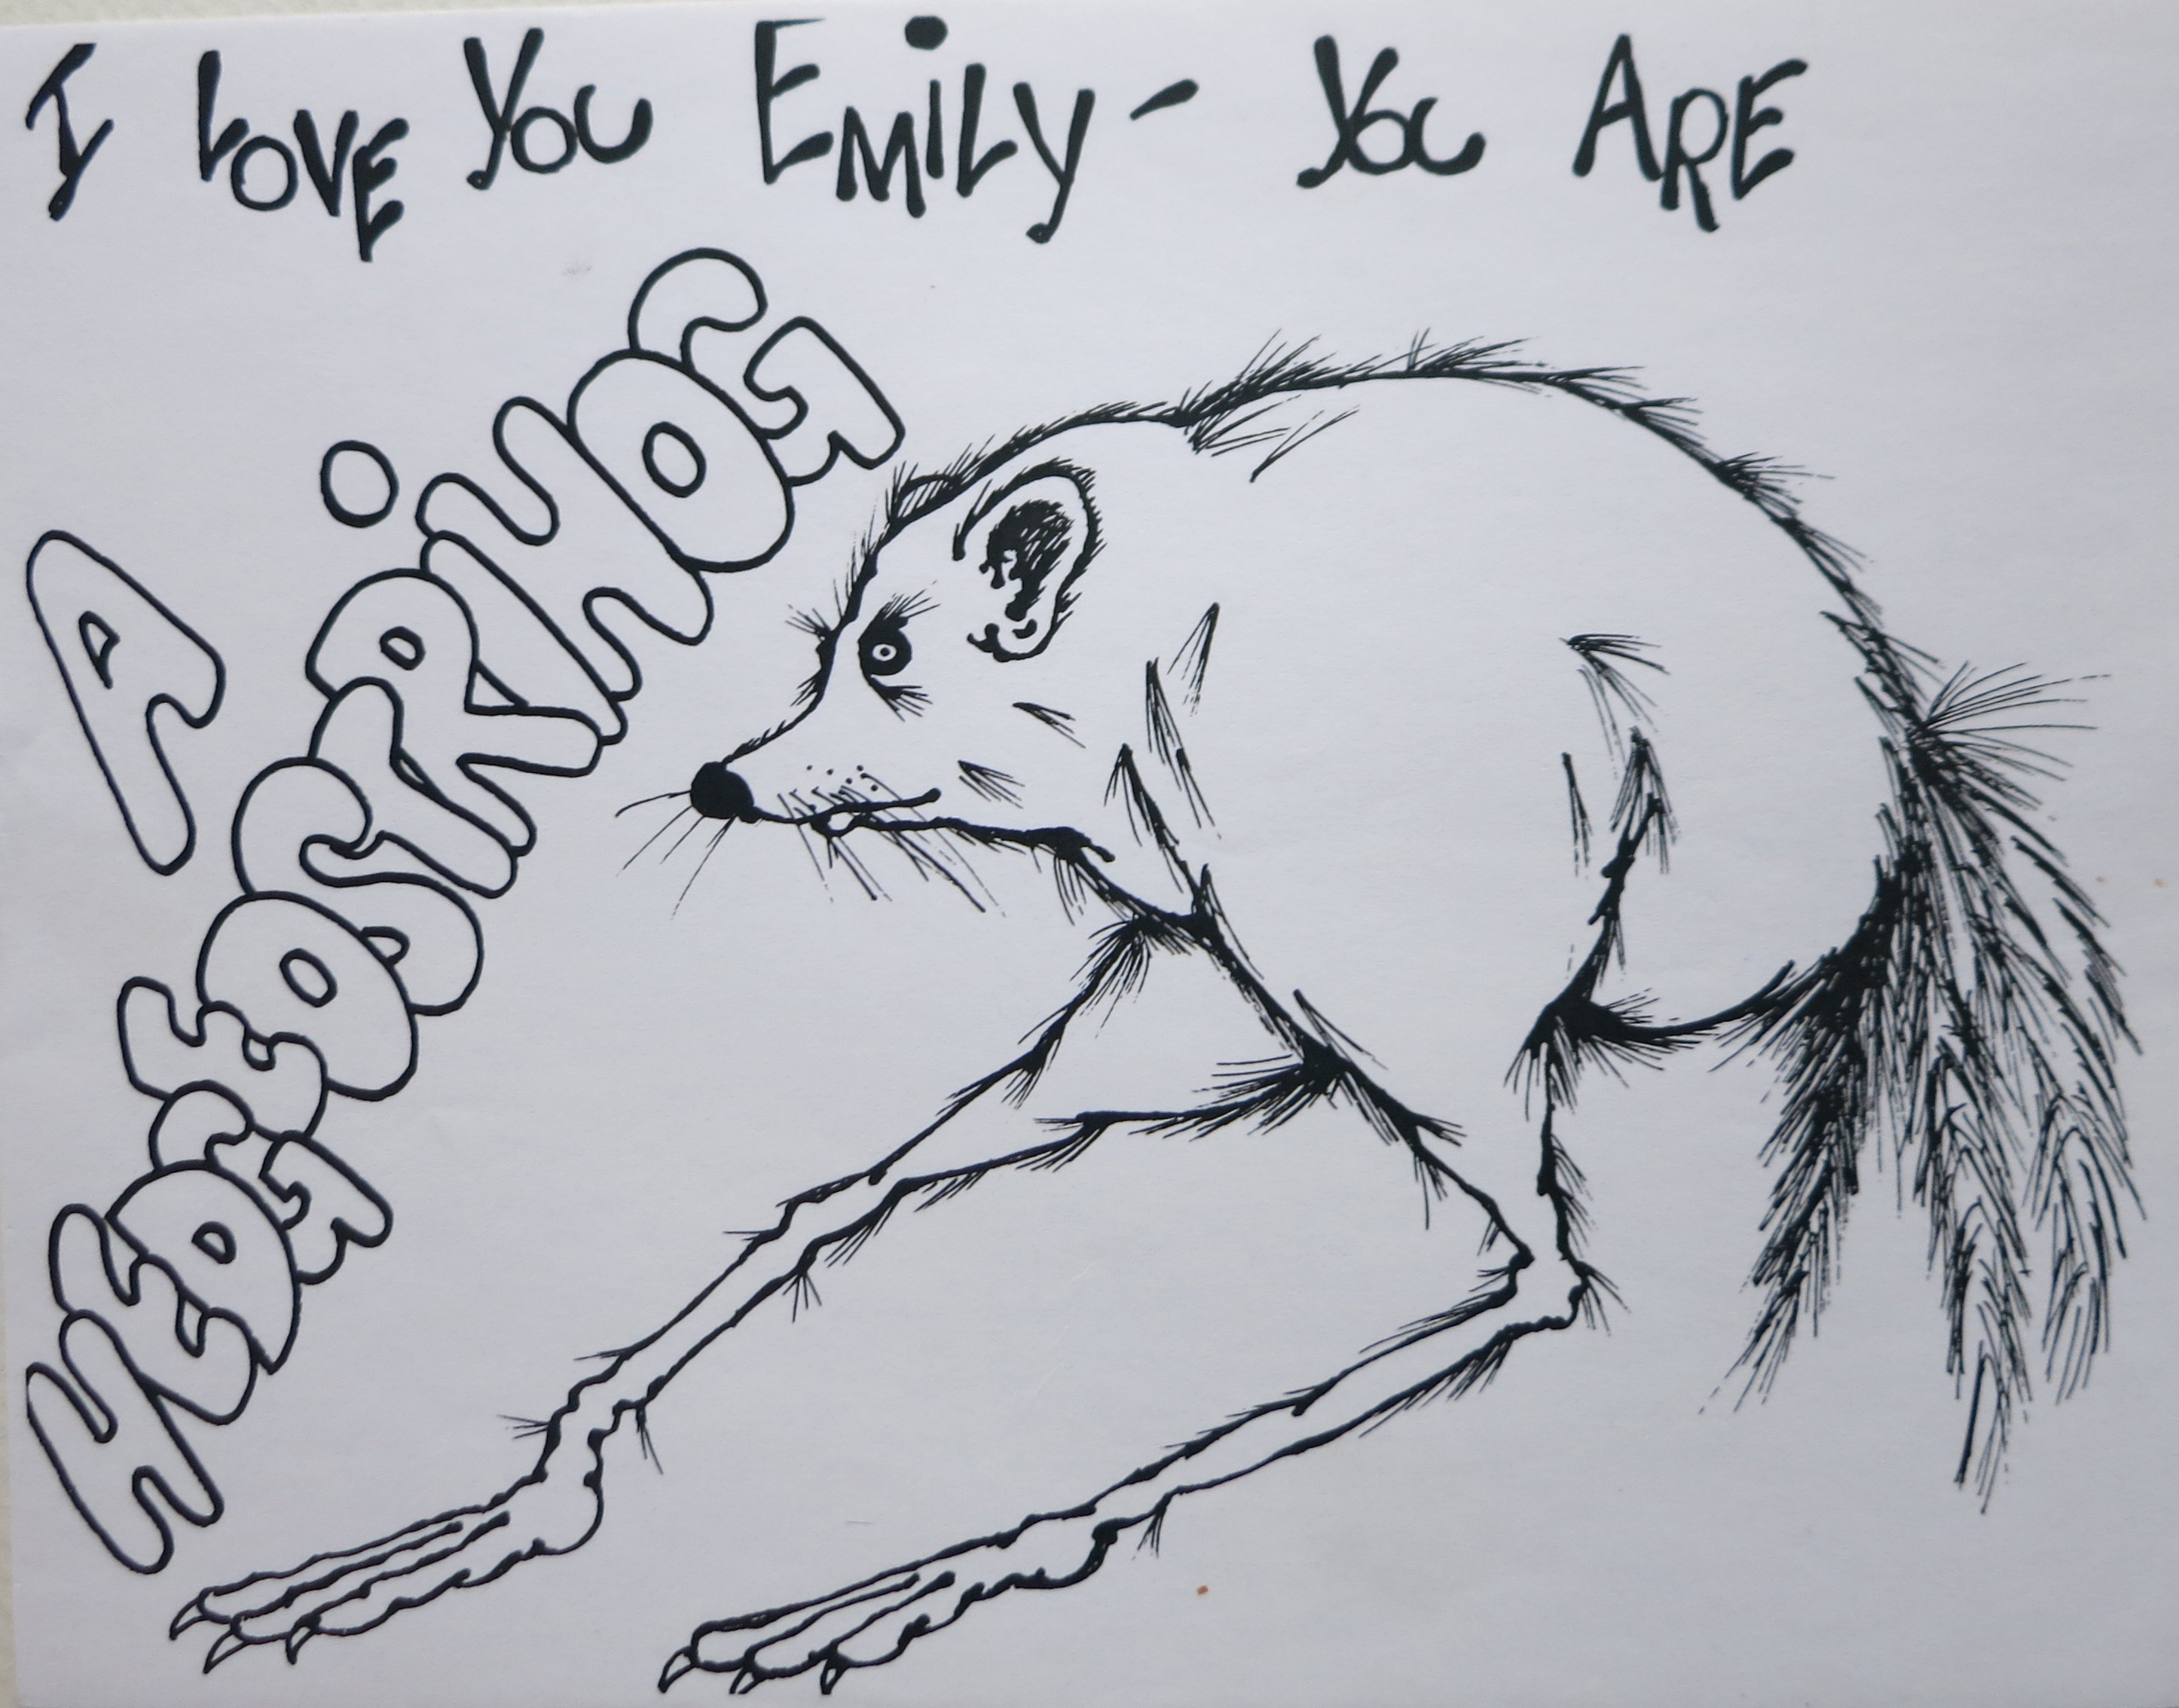 I LOVE YOU EMiLY - YOU ARE
A
HEDGEOSTRiHOG